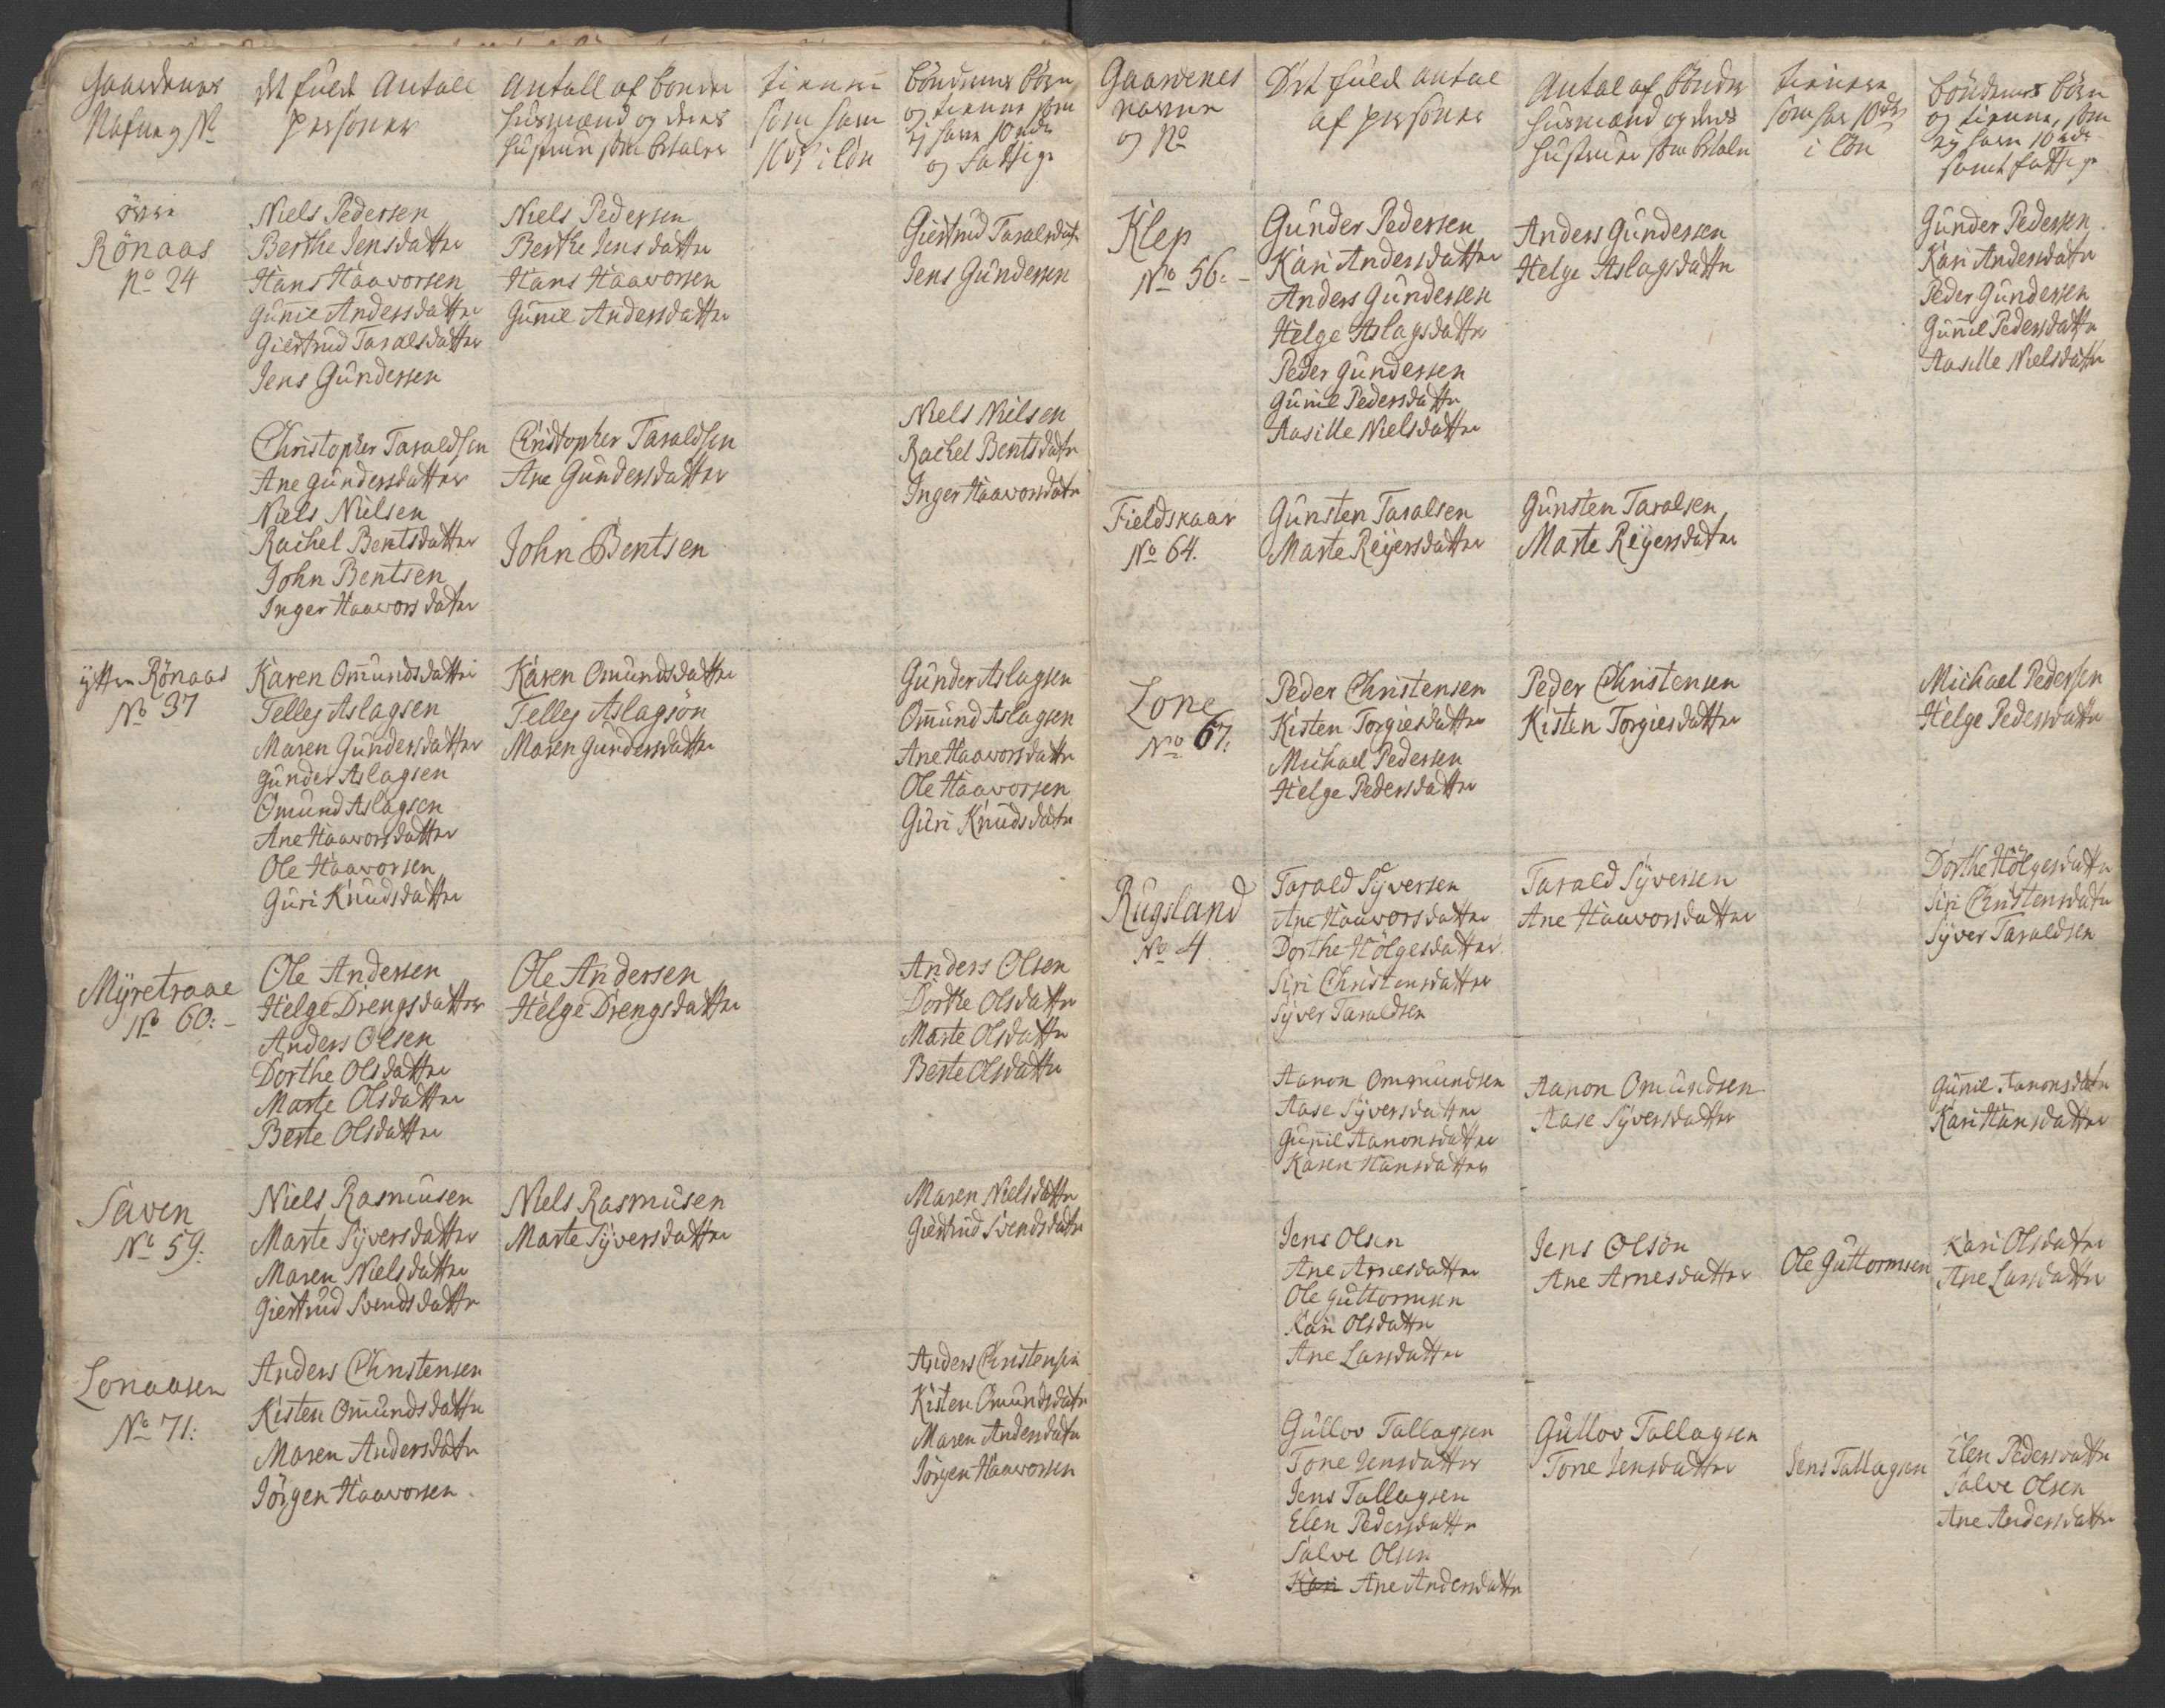 Gaardenes
Nafn og No
det fulde Antall
personer
Antall af bønder
huusmænd og deres
hustruer som betaler
tienere
som har
10 rdr i løn
böndernes börn
og tienere som
ej have 10 rdr
og fattige
övre
Rönaas
No 24
Niels Pedersen
Berthe Jensdatter
Hans Haaworsen
Gunnie Andersdatter
Giertrud Taralsdatter
Jens Gundersen
Niels Pedersen
Berthe Jensdatter
Hans Haaworsen
Gunnie Andersdatter
Giertrud Taralsdatr
Jens Gundersen
Christopher Taraldsen
Ane Gundersdatter
Niels Nielsen
Rachel Bentsdatter
John Bentsen
Inger Haaworsdatter
Christopher Taraldsen
Ane Gundersdatter
John Bentsen
Niels Nielsen
Rachel Bentsdatr
Inger Haaworsdatr
ytter Rönaas
No 37
Karen Omundsdatter
Telleg Aslagsen
Maren Gundersdatter
Gunder Aslagsen
Omund Aslagsen
Ane Haaworsdatter
Ole Haaworsen
Guri Knudsdatter
Karen Omundsdatter
Telleg Aslagsön
Maren Gundersdatter
Gunder Aslagsen
Omund Aslagsen
Ane Haaworsdatter
Ole Haaworsen
Guri Knudsdatr
Myretraae
No 60:-
Ole Andersen
Helge Drengsdatter
Anders Olsen
Dorthe Olsdatter
Marte Olsdatter
Berte Olsdatter
Ole Andersen
Helge Drengsdatter
Anders Olsen
Dorthe Olsdatter
Marte Olsdatter
Berte Olsdatter
Saven
No 59:
Niels Rasmusen
Marte Syversdatter
Maren Nielsdatter
Giertrud Svendsdatter
Niels Rasmusen
Marte Syversdatter
Maren Nielsdatter
Giertrud Svendsdatr
Lonaasen
No 71:
Anders Christensen
Kisten Omundsdatter
Maren Andersdatr
Jörgen Haaworsen
Anders Christensen
Kisten Omundsdatr
Maren Andersdatr
Jörgen Haaworsen
Gaardenes
navne
og No
Det fulde antal
af personer
Antal af bönder
huusmænd og deres
hustruer som betaler
tienere
som har 10 rdr
i lön
böndernes börn
og tienere, som
ey have 10 rdr
samt fattige
Klep
No 56:-
Gunder Pedersen
Kari Andersdatter
Anders Gundersen
Helge Aslagsdatter
Peder Gundersen
Gunnil Pedersdatter
Aasille Nielsdatter
Anders Gundersen
Helge Aslagsdatter
Gunder Pedersen
Kari Andersdatter
Peder Gundersen
Gunnil Pedersdatter
Aasille Nielsdatter
Fieldskaar
No 64.
Gunsten Taralsen
Marte Reyersdatter
Gunsten Taralsen
Marte Reyersdatter
Lone
No 67:
Peder Christensen
Kisten Torgiesdatter
Michael Pedersen
Helge Pedersdatter
Peder Christensen
Kisten Torgiesdatter
Michael Pedersen
Helge Pedersdatter
Rugsland
No 4
Tarald Syversen
Ane Haaworsdatter
Dorthe Hölgesdatter
Siri Christensdatter
Syver Taraldsen
Tarald Syversen
Ane Haaworsdatter
Dorthe Hölgesdatter
Siri Christensdatr
Syver Taraldsen
Aanon Ommundsen
Aase Syversdatter
Gunnil Aanonsdatter
Karen Hansdatter
Aanon Omundsen
Aase Syversdatter
Gunnil Aanonsdatr
Kari Hansdatter
Jens Olsen
Ane Arnesdatter
Ole Guttormsen
Kari Olsdatter
Ane Larsdatter
Jens Olsön
Ane Arnesdatter
Ole Guttormsen
Kari Olsdatter
Ane Larsdatter
Gullov Tallagsen
Tone Jensdatter
Jens Tallagsen
Elen Pedersdatter
Salve Olsen
Kari Ane Andersdatter
Gullov Tallagsen
Tone Jensdatter
Jens Tallagsen
Elen Pedersdatter
Salve Olsen
Ane Andersdatter